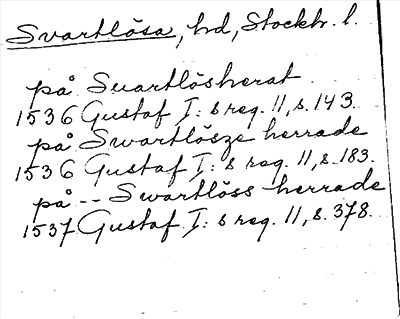 Svartlösa, hd, Stockh. l.
på Suartlösherat
1536 Gustaf I: s reg. 11, s. 143.
på Swartlösze herrade
1536 Gustaf I: s reg. 11, s. 183.
på -- Swartlöss herrade
1537 Gustaf I: s reg. 11, s. 378.